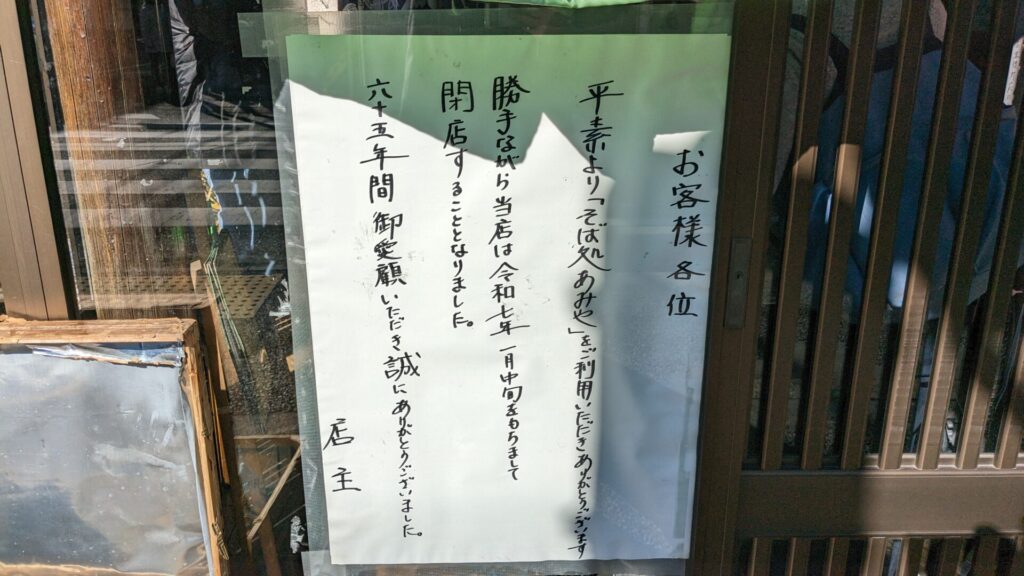 お客様各位
平素より「そば処あみや」をご利用いただきありがとうございます
勝手ながら当店は令和七年一月中旬をもちまして
閉店することとなりました。
六十五年間御愛顧いただき誠にありがとうございました。
店主